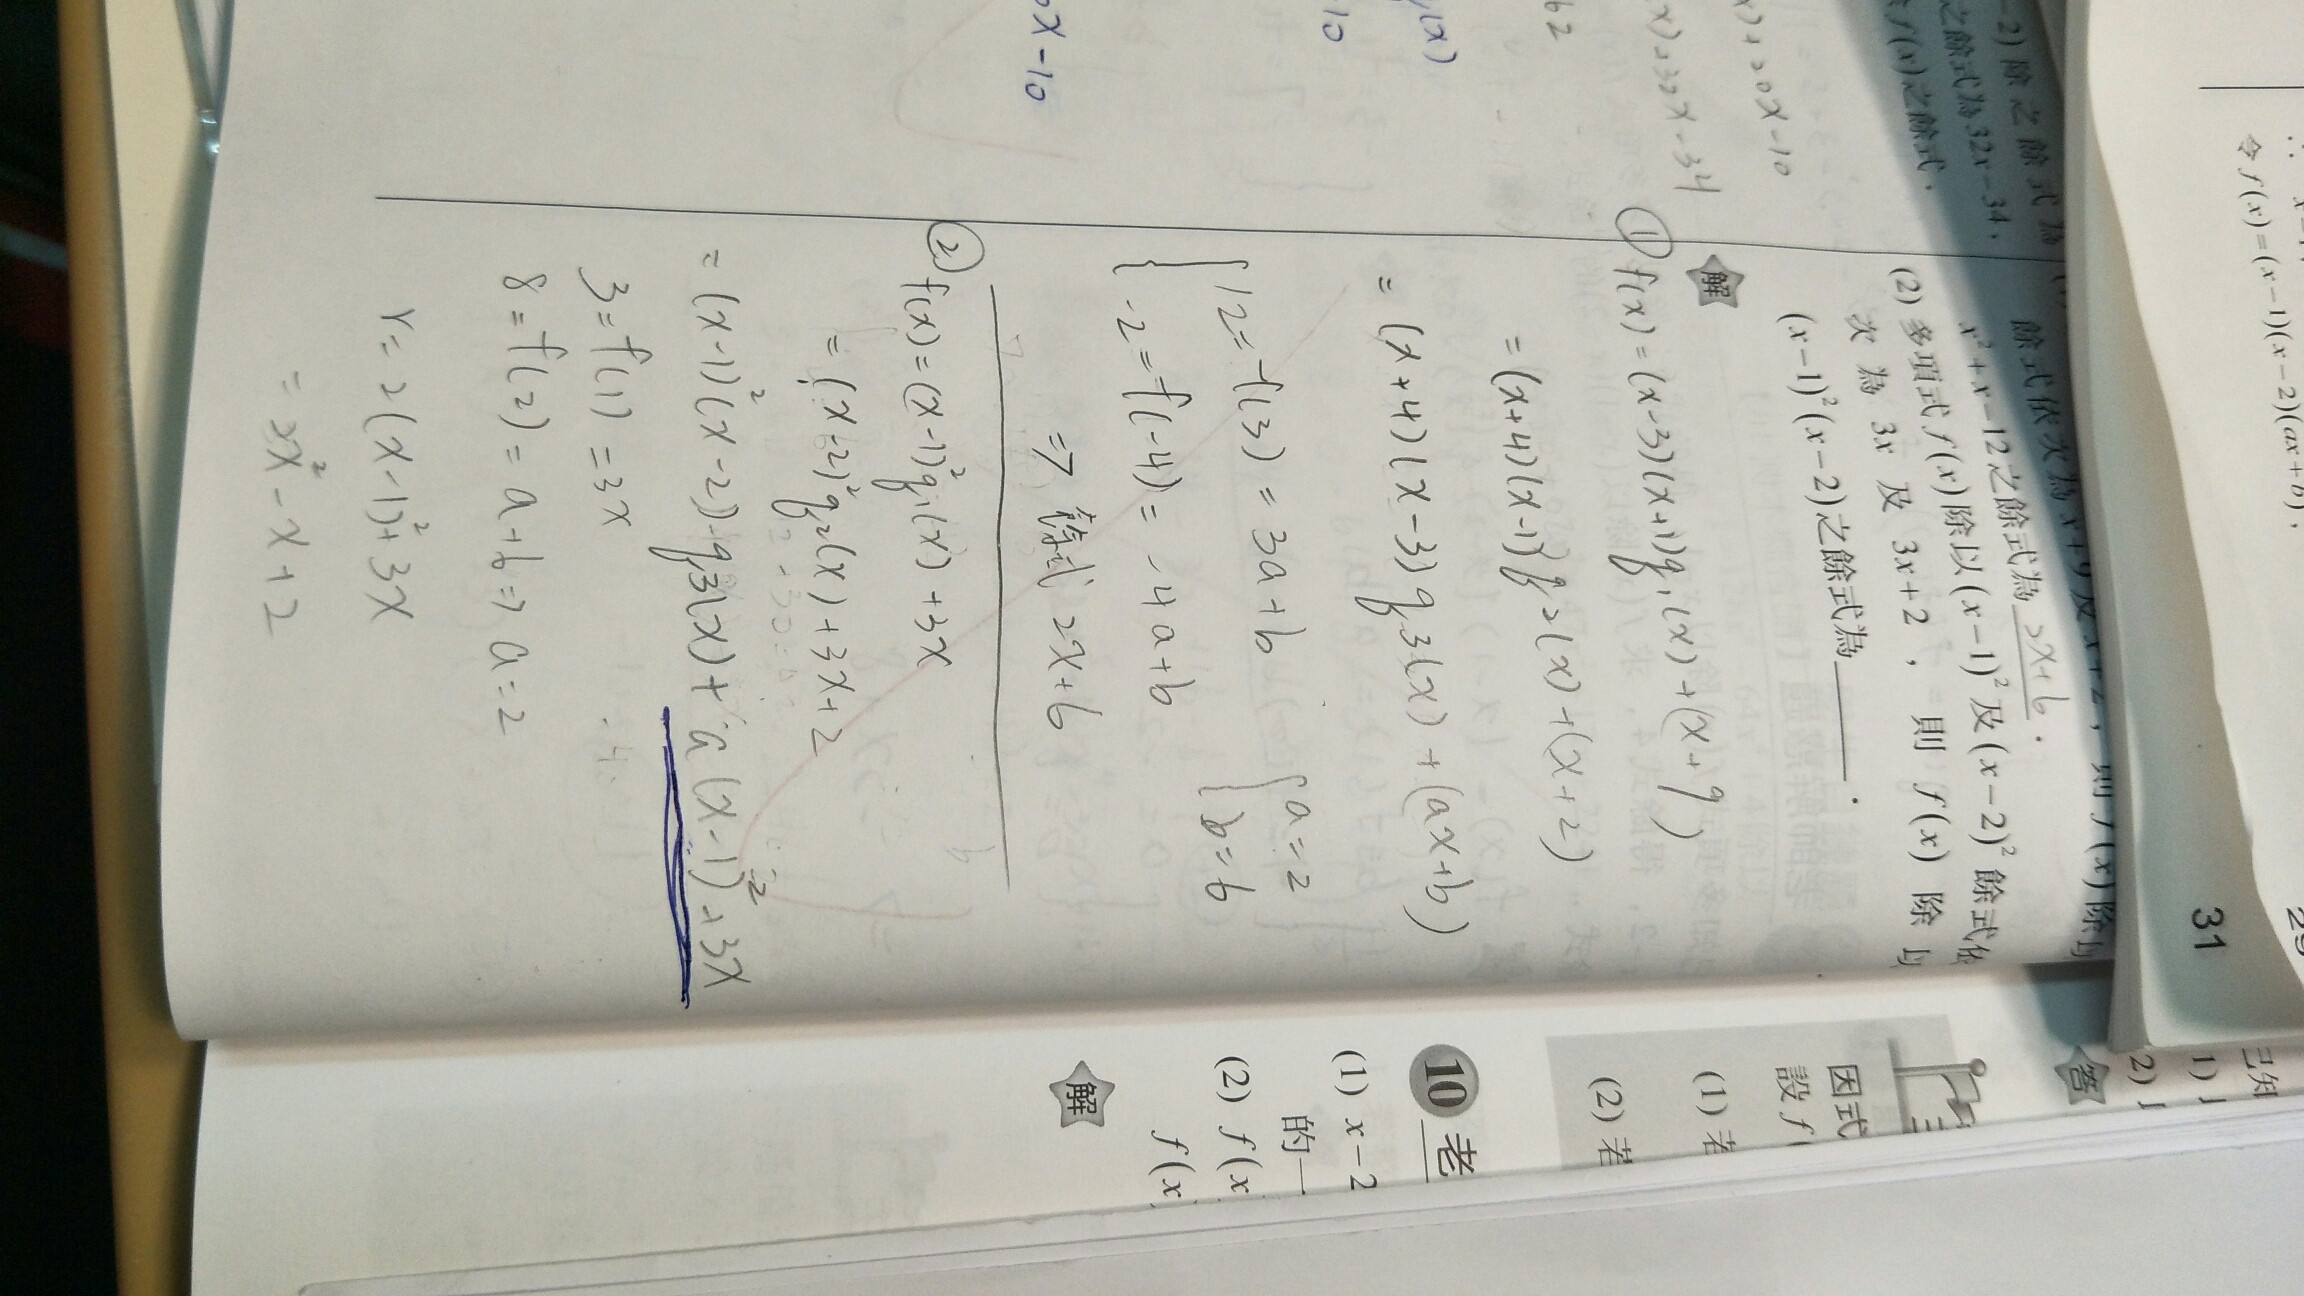 -2)除之餘式為
之餘式為32x-34,
f(x)之餘式.
x)+20x-10
x)+32x-34
62
(x)
-10
x-10
餘式依次為x+9及x+2,則f(x)除以
x²+x-12之餘式為2x+6.
(2)多項式f(x)除以(x-1)²及(x-2)²餘式依
次為3x及3x+2,則f(x)除以
(x-1)²(x-2)之餘式為______.
解
① f(x)=(x-3)(x+1)q₁(x)+(x+9)
=(x+4)(x-1)q₂(x)+(x+2)
=(x+4)(x-3)q₃(x)+(ax+b)
{12=f(3)=3a+b
{-2=f(-4)=-4a+b
{a=2
{b=6
=> 餘式 2x+6
② f(x)=(x-1)²q₁(x)+3x
=(x-2)²q₂(x)+3x+2
=(x-1)²(x-2)·q₃(x)+a(x-1)²+3x
3=f(1)=3x
8=f(2)=a+6=>a=2
r=2(x-1)²+3x
=2x²-x+2
令f(x)=(x-1)(x-2)(ax+b),
31
已知
答
因式
設f(
(1)若
(2)若
10 老
(1) x-2
的一
(2) f(x
f(x
解